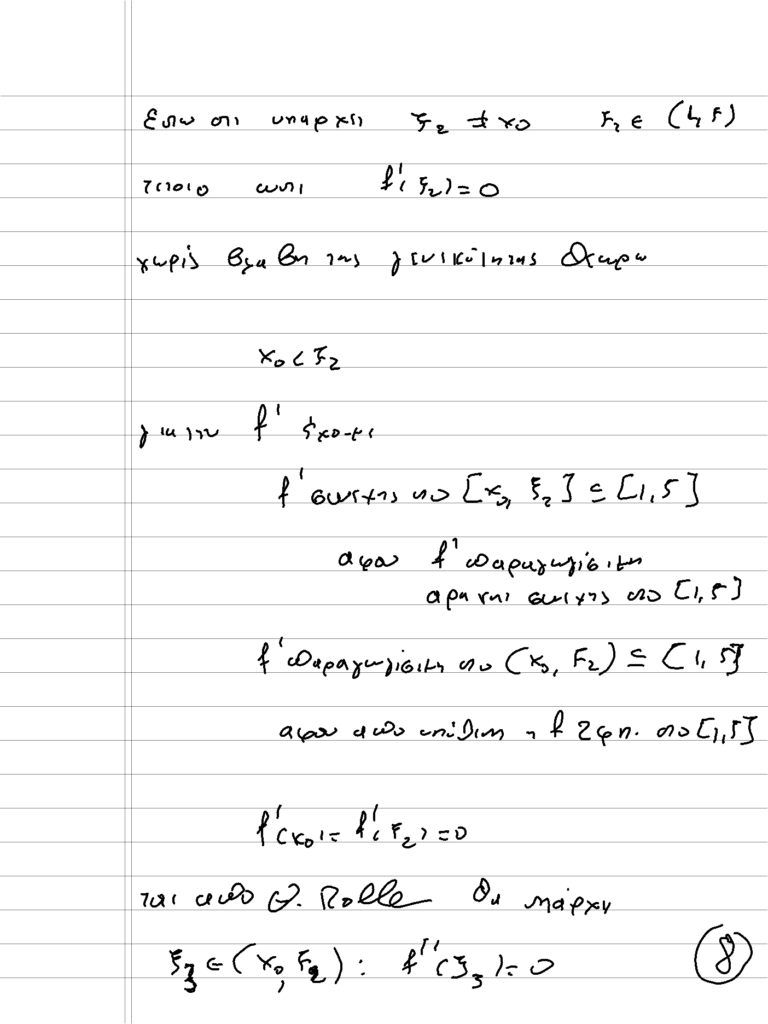 Εστω οτι υπαρχει ξ₂ ≠ x₀ ξ₂ ∈ (1,5)
τετοιο ωστε f'(ξ₂) = 0
χωρίς βλαβη της γενικότητας θεωρω
x₀ < ξ₂
για την f' έχουμε
f' συνεχης στο [x₀, ξ₂] ⊆ [1,5]
αφου f' παραγωγισιμη
αρα και συνεχης στο [1,5]
f' παραγωγισιμη στο (x₀, ξ₂) ⊆ [1,5]
αφου απο υποθεση η f 2 φπ. στο [1,5]
f'(x₀) = f'(ξ₂) = 0
τοτε απο Θ. Rolle θα υπάρχει
ξ₃ ∈ (x₀, ξ₂) : f''(ξ₃) = 0
8